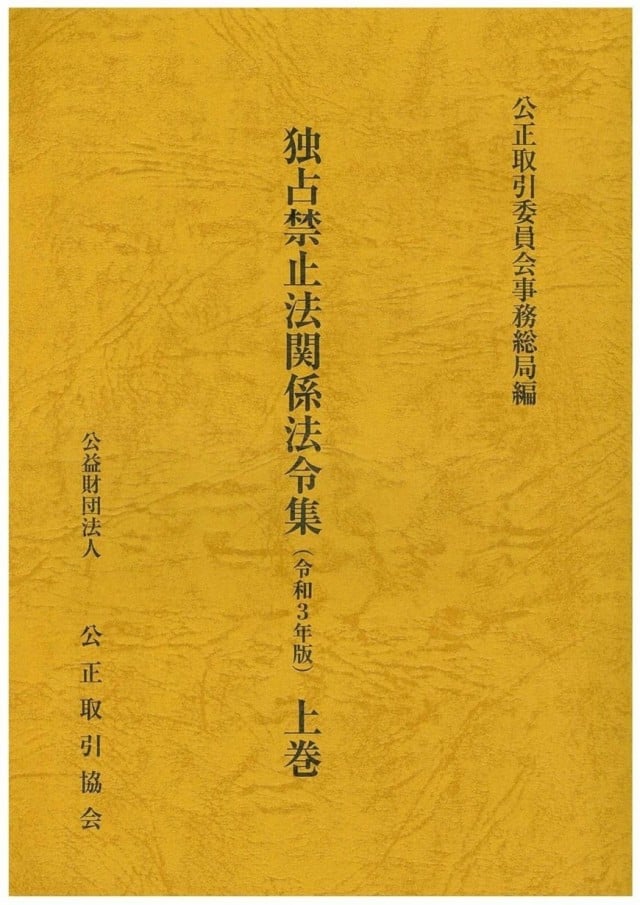 公正取引委員会事務総局編
独占禁止法関係法令集（令和3年版） 上巻
公益財団法人 公正取引協会